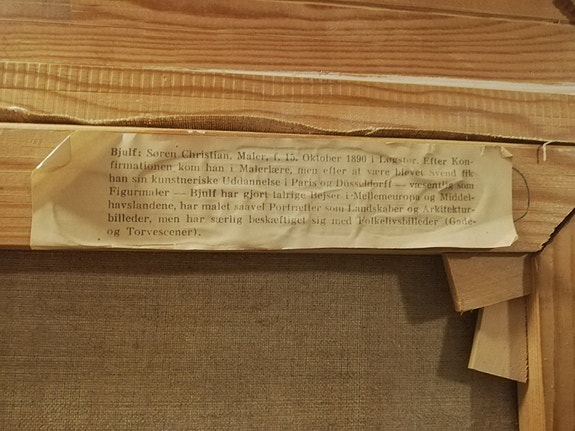 Bjulf: Søren Christian, Maler, f. 15. Oktober 1890 i Løgstør. Efter Kon-
firmationen kom han i Malerlære, men efter at være blevet Svend fik
han sin kunstneriske Uddannelse i Paris og Düsseldorff — væsentlig som
Figurmaler — Bjulf har gjort talrige Rejser i Mellemeuropa og Middel-
havslandene, har malet saavel Portrætter som Landskaber og Arkitektur-
billeder, men har særlig beskæftiget sig med Folkelivsbilleder (Gade-
og Torvescener).